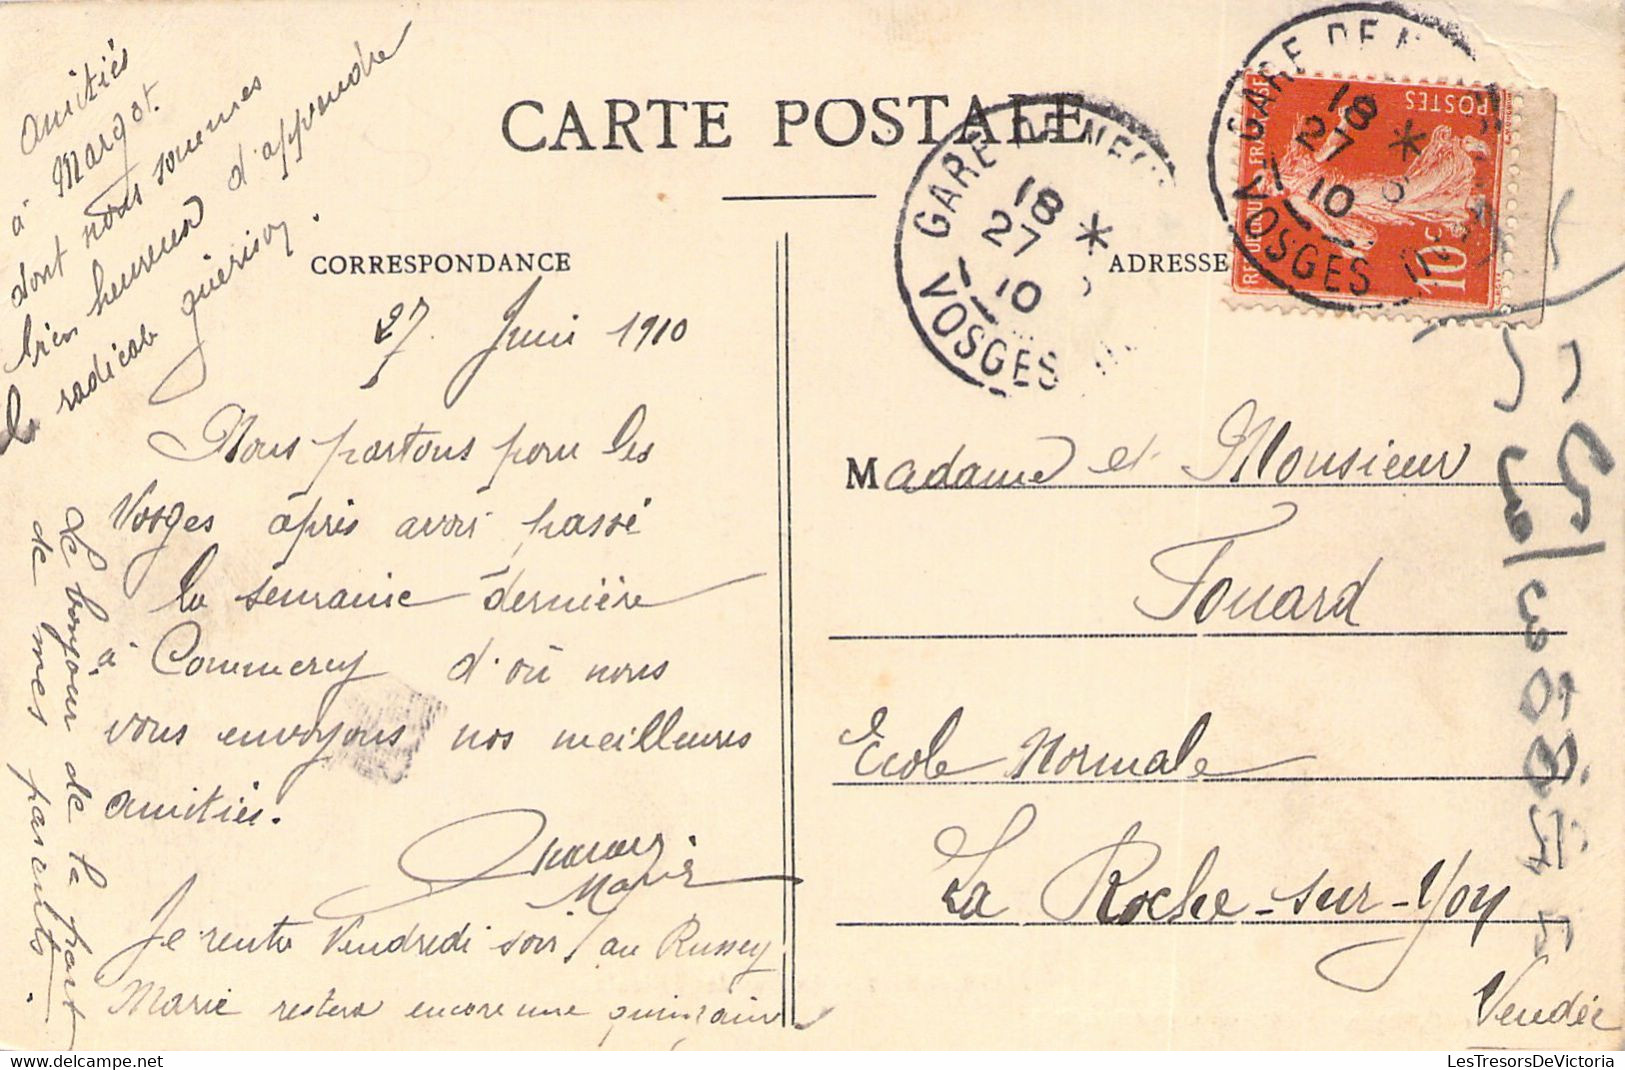 CARTE POSTALE
CORRESPONDANCE
ADRESSE
amitiés
à Margot.
dont nous sommes
bien heureux d'apprendre
la radicale guérison.
27 Juin 1910
Nous partons pour les
Vosges après avoir passé
la semaine dernière
à Commercy d'où nous
vous envoyons nos meilleures
amitiés.
Marie
Je rentre Vendredi soir au Russey
Marie restera encore une quinzaine
Le bonjour de la part
de mes parents.
GARE DE NEUF
18
27
10
VOSGES
GARE DE N
18 *
27
10
VOSGES
REPUBLIQUE FRANÇAISE
POSTES
10c
Madame et Monsieur
Fouard
Ecole Normale
La Roche-sur-Yon
Vendée
LesTresorsDeVictoria